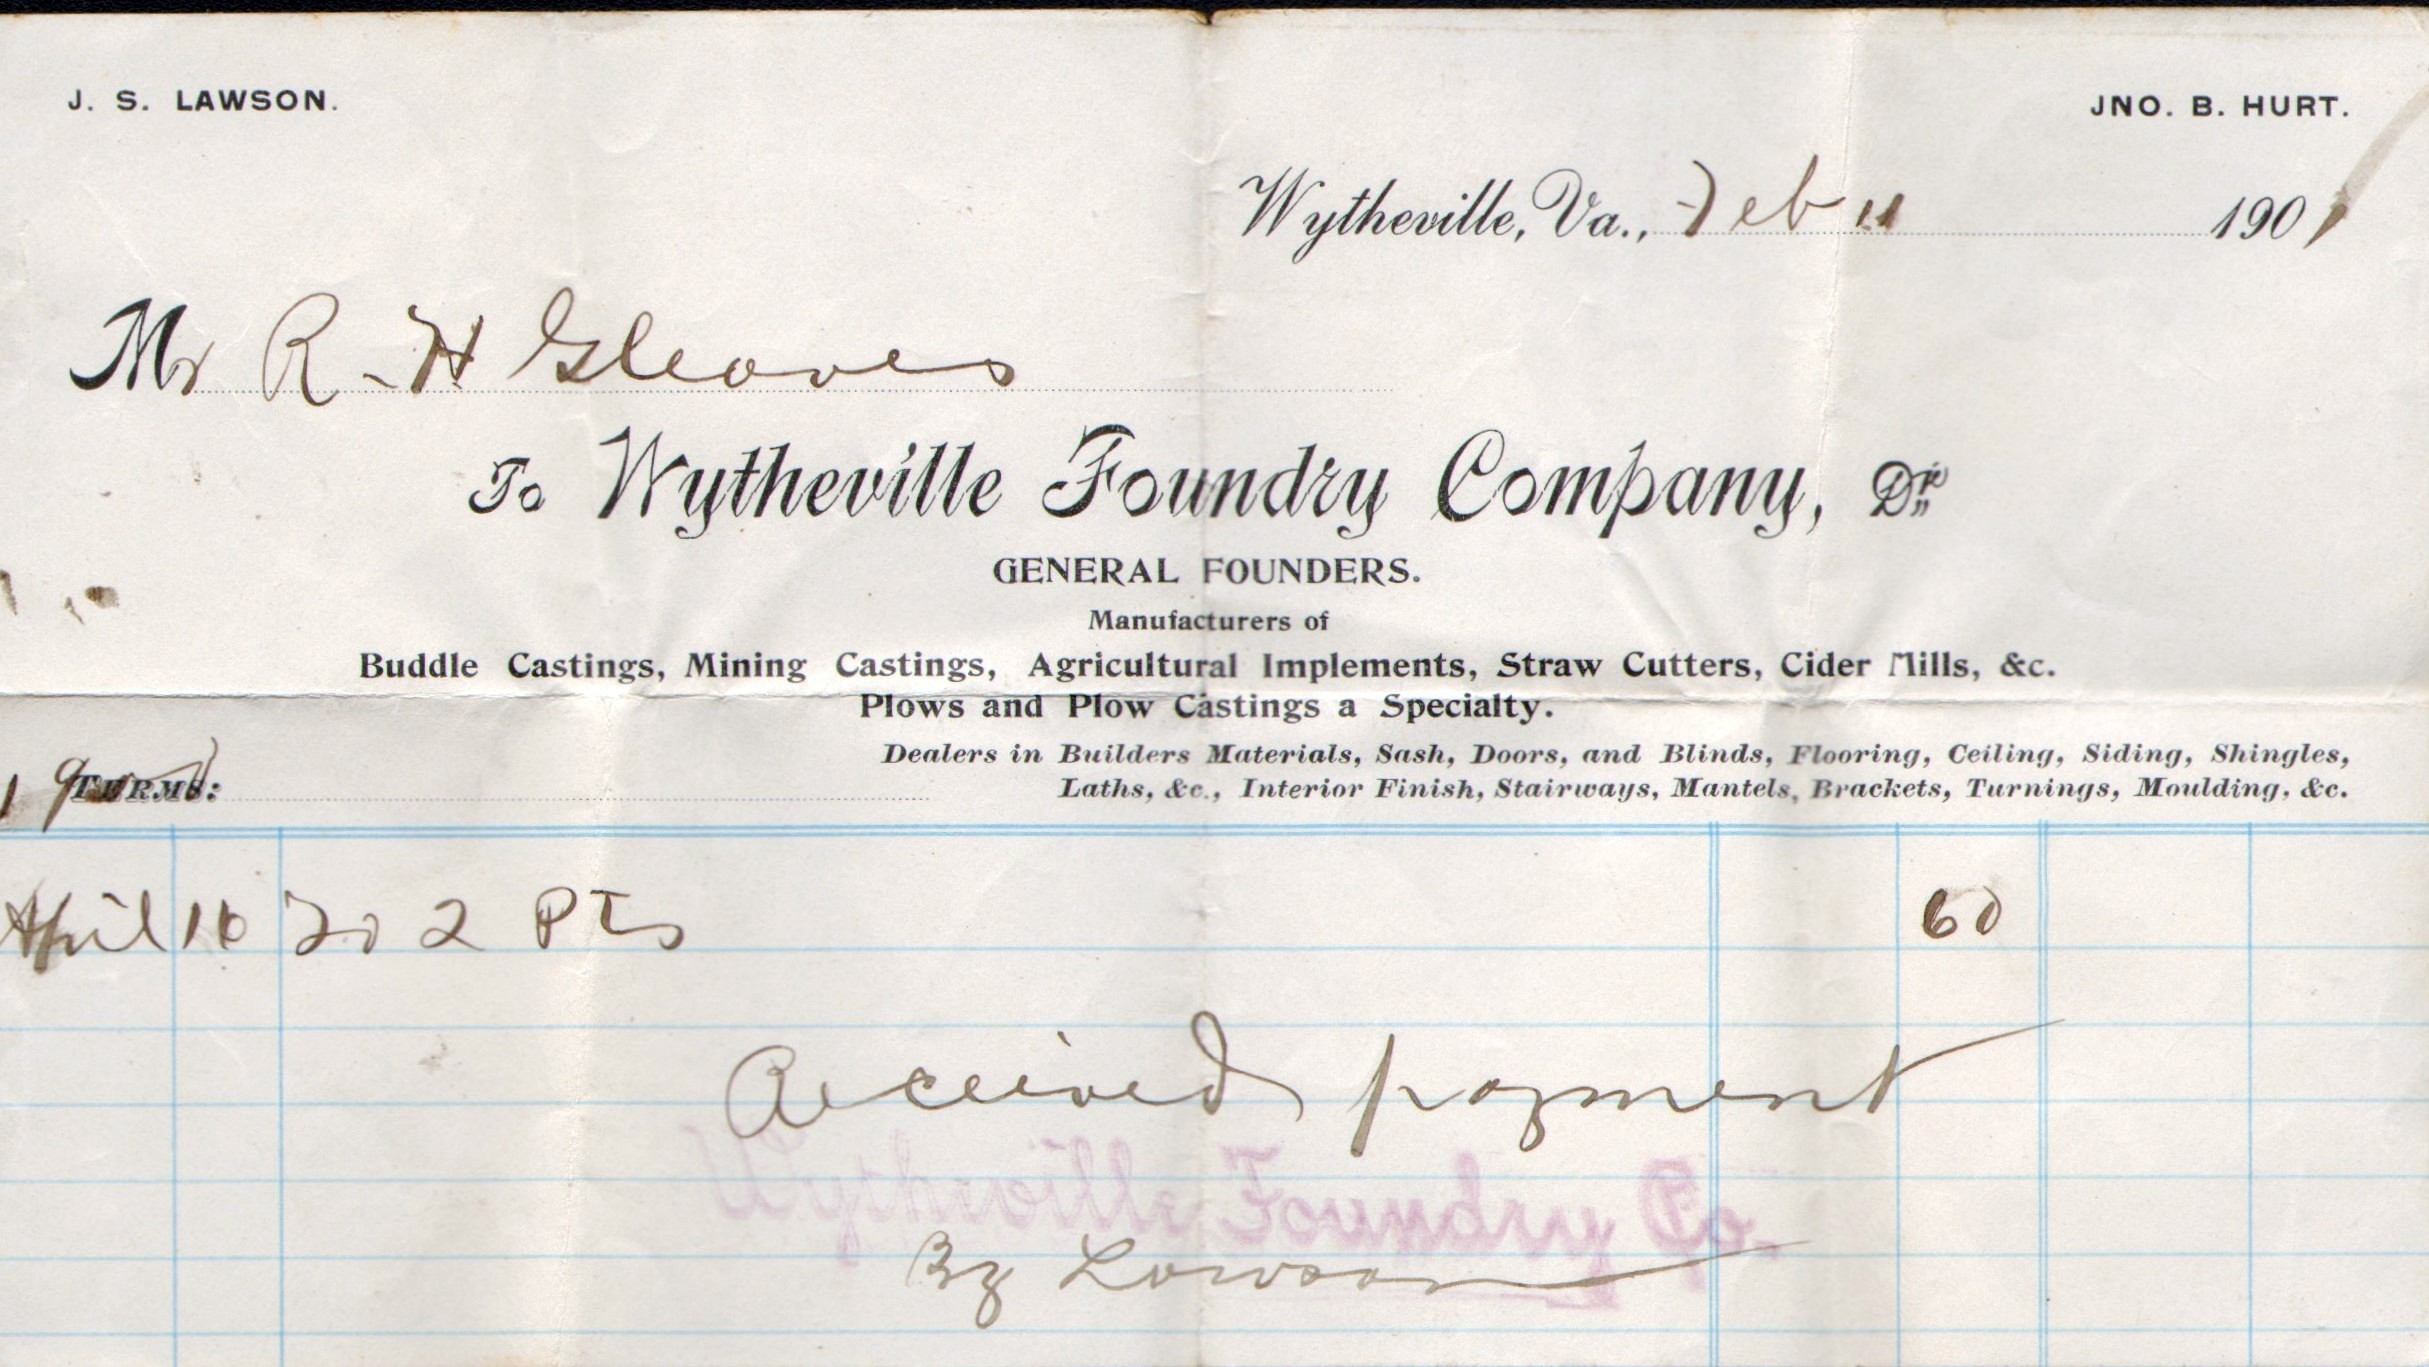 J. S. LAWSON.
JNO. B. HURT.
Wytheville, Va., Feb 11 1901
Mr R. H Gleaves
To Wytheville Foundry Company, Dr.
GENERAL FOUNDERS.
Manufacturers of
Buddle Castings, Mining Castings, Agricultural Implements, Straw Cutters, Cider Mills, &c.
Plows and Plow Castings a Specialty.
Dealers in Builders Materials, Sash, Doors, and Blinds, Flooring, Ceiling, Siding, Shingles,
TERMS:
Laths, &c., Interior Finish, Stairways, Mantels, Brackets, Turnings, Moulding, &c.
April 16 To 2 Pts 60
Received payment
Wytheville Foundry Co.
By Lawson